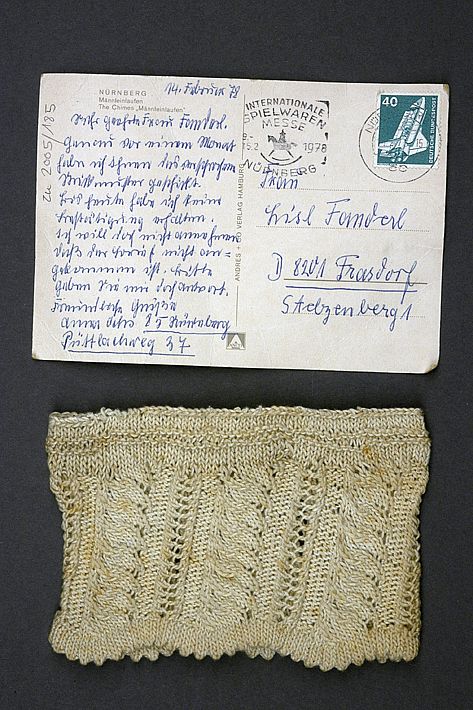 NÜRNBERG
Männleinlaufen
The Chimes „Männleinlaufen"
14. Februar 78
Sehr Geehrte Frau Fanderl.
Genau vor einem Monat
habe ich Ihnen das versprochene
Strickmuster geschickt.
Bis heute habe ich keine
Bestätigung erhalten.
Ich will doch nicht annehmen
daß der Brief nicht an-
gekommen ist. Bitte
geben Sie mir doch Antwort.
Freundliche Grüße
Anna 85 Nürnberg
Püttlachweg 37
Zu 2005/185
ANDRES + CO VERLAG HAMBURG
INTERNATIONALE
SPIELWAREN
MESSE
15.2 1978
NÜRNBERG
40
DEUTSCHE BUNDESPOST
Frau
Lisl Fanderl
D 8201 Frasdorf
Stelzenberg 1